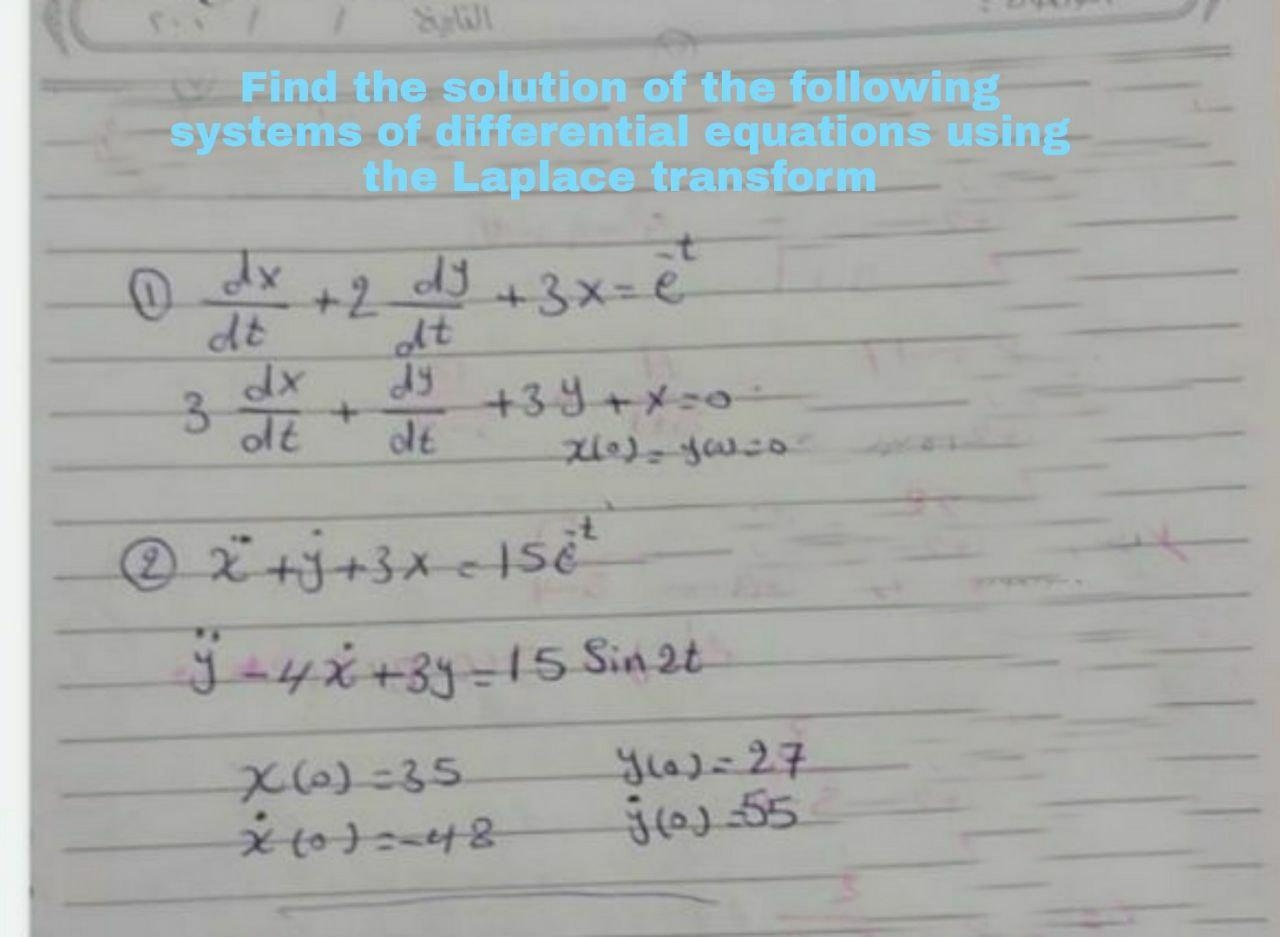 التاريخ / / ٢٠٠
Find the solution of the following
systems of differential equations using
the Laplace transform
① dx/dt + 2 dy/dt + 3x = e^-t
3 dx/dt + dy/dt + 3y + x = 0
x(0) = y(0) = 0
② ẍ + ẏ + 3x = 15e^-t
ÿ - 4ẋ + 3y = 15 Sin 2t
x(0) = 35 y(0) = 27
ẋ(0) = -48 ẏ(0) = 55